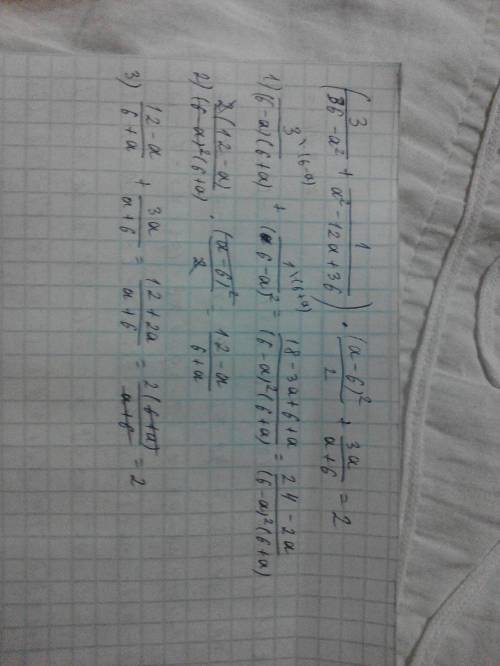 (3/(36-a²) + 1/(a²-12a+36)) · (a-6)²/2 + 3a/(a+6) = 2
1) 3\(6-a)/((6-a)(6+a)) + 1\(6+a)/(6-a)² = (18-3a+6+a)/((6-a)²(6+a)) = (24-2a)/((6-a)²(6+a))
2) 2(12-a)/((6-a)²(6+a)) · (a-6)²/2 = (12-a)/(6+a)
3) (12-a)/(6+a) + 3a/(a+6) = (12+2a)/(a+6) = 2(6+a)/(a+6) = 2